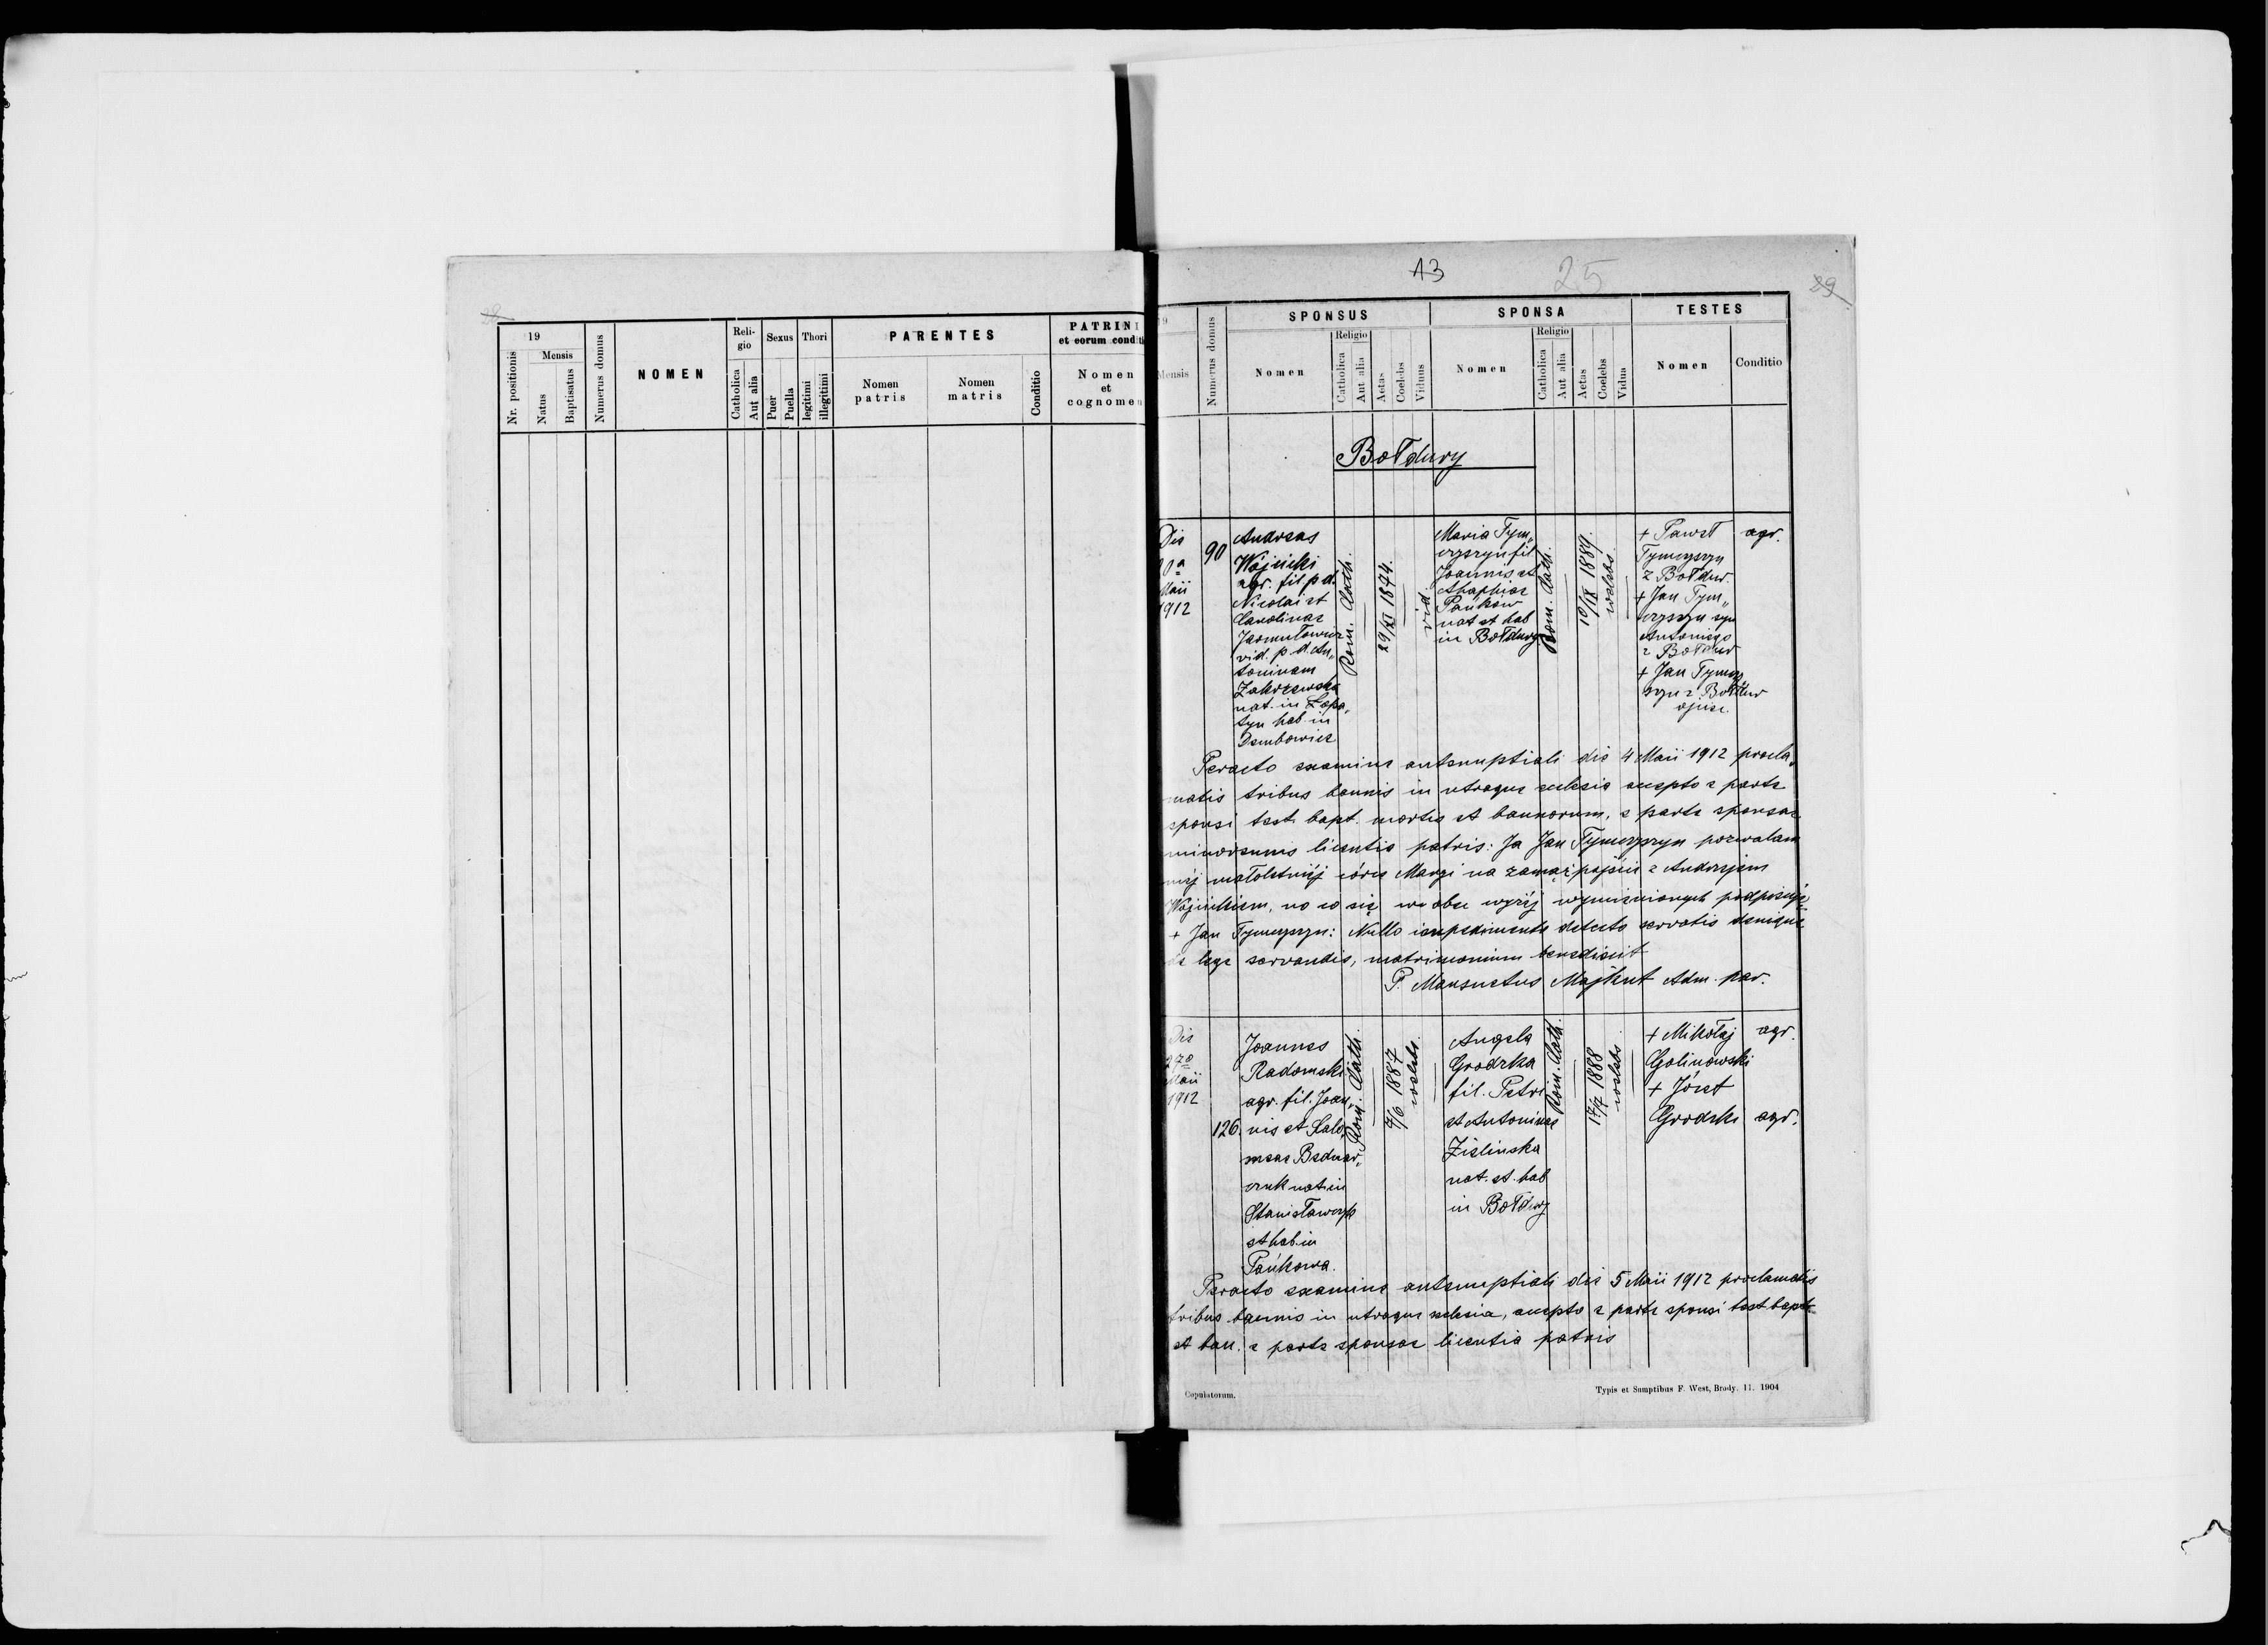 13
25
29
19
Nr. positionis
Mensis
Natus
Baptisatus
Numerus domus
NOMEN
Reli-
gio
Catholica
Aut alia
Sexus
Puer
Puella
Thori
legitimi
illegitimi
PARENTES
Nomen
patris
Nomen
matris
Conditio
PATRINI
et eorum condit
Nomen
et
cognomen
9
Mensis
Numerus domus
SPONSUS
Nomen
Religio
Catholica
Aut alia
Aetas
Coelebs
Viduus
SPONSA
Nomen
Religio
Catholica
Aut alia
Aetas
Coelebs
Vidua
TESTES
Nomen
Conditio
Bołdury
Die
Maii
1912
90
Andreas
Wójcicki
agr. fil. p. d.
Nicolai et
Carolinae
Jarmułowicz
vid. p. d. An„
toninam
Zakrzewska
nat. in Łopa„
tyn hab. in
Dembowice
Rom. Cath.
29/XI 1874.
vid.
Maria Tym„
czyszyn fil.
Joannis et
Ahaphiae
Pańków
nat et hab
in Bołdury
Rom. Cath.
10/IX 1889.
coelebs
+ Paweł
Tymczyszyn
z Bołdur.
+ Jan Tym„
czyszyn syn
Antoniego
z Bołdur
+ Jan Tymczy
szyn z Bołdur
ojciec.
agr.
Peracto examine antenuptiali die 4 Maii 1912 procla„
matis tribus bannis in utraque eclesia accepto e parte
sponsi test. bapt. mortis et bannorum, e parte sponsae
minorennis licentia patris: Ja Jan Tymczyszyn pozwalam
mej małoletniej córce Maryi na zamążpójście z Andrzejem
Wójcickiem, na co się wobec wyżej wymienionych podpisuję
+ Jan Tymczyszyn: Nullo impedimento detecto servatis denique
de lege servandis, matrimonium benedixit
P. Mansuetus Majkut Adm. par.
Die
27a
Maii
1912
126.
Joannes
Radomski
agr. fil. Joan„
nis et Salo„
meae Bednar„
czuk nat. in
Stanisławczyk
et hab. in
Pańkowa.
Rom. Cath.
7/6 1887
coelebs.
Angela
Grodzka
fil. Petri
et Antoninae
Zielinska
nat. et hab
in Bołdury
Rom. Cath.
17/7 1888
coelebs.
+ Mikołaj
Golinowski
+ Józef
Grodzki
agr.
agr.
Peracto examine antenuptiali die 5 Maii 1912 proclamatis
tribus bannis in utraque eclesia, accepto e parte sponsi test bapt.
et ban. e parte sponsae licentia patris
Copulatorum.
Typis et Sumptibus F. West, Brody. 11. 1904